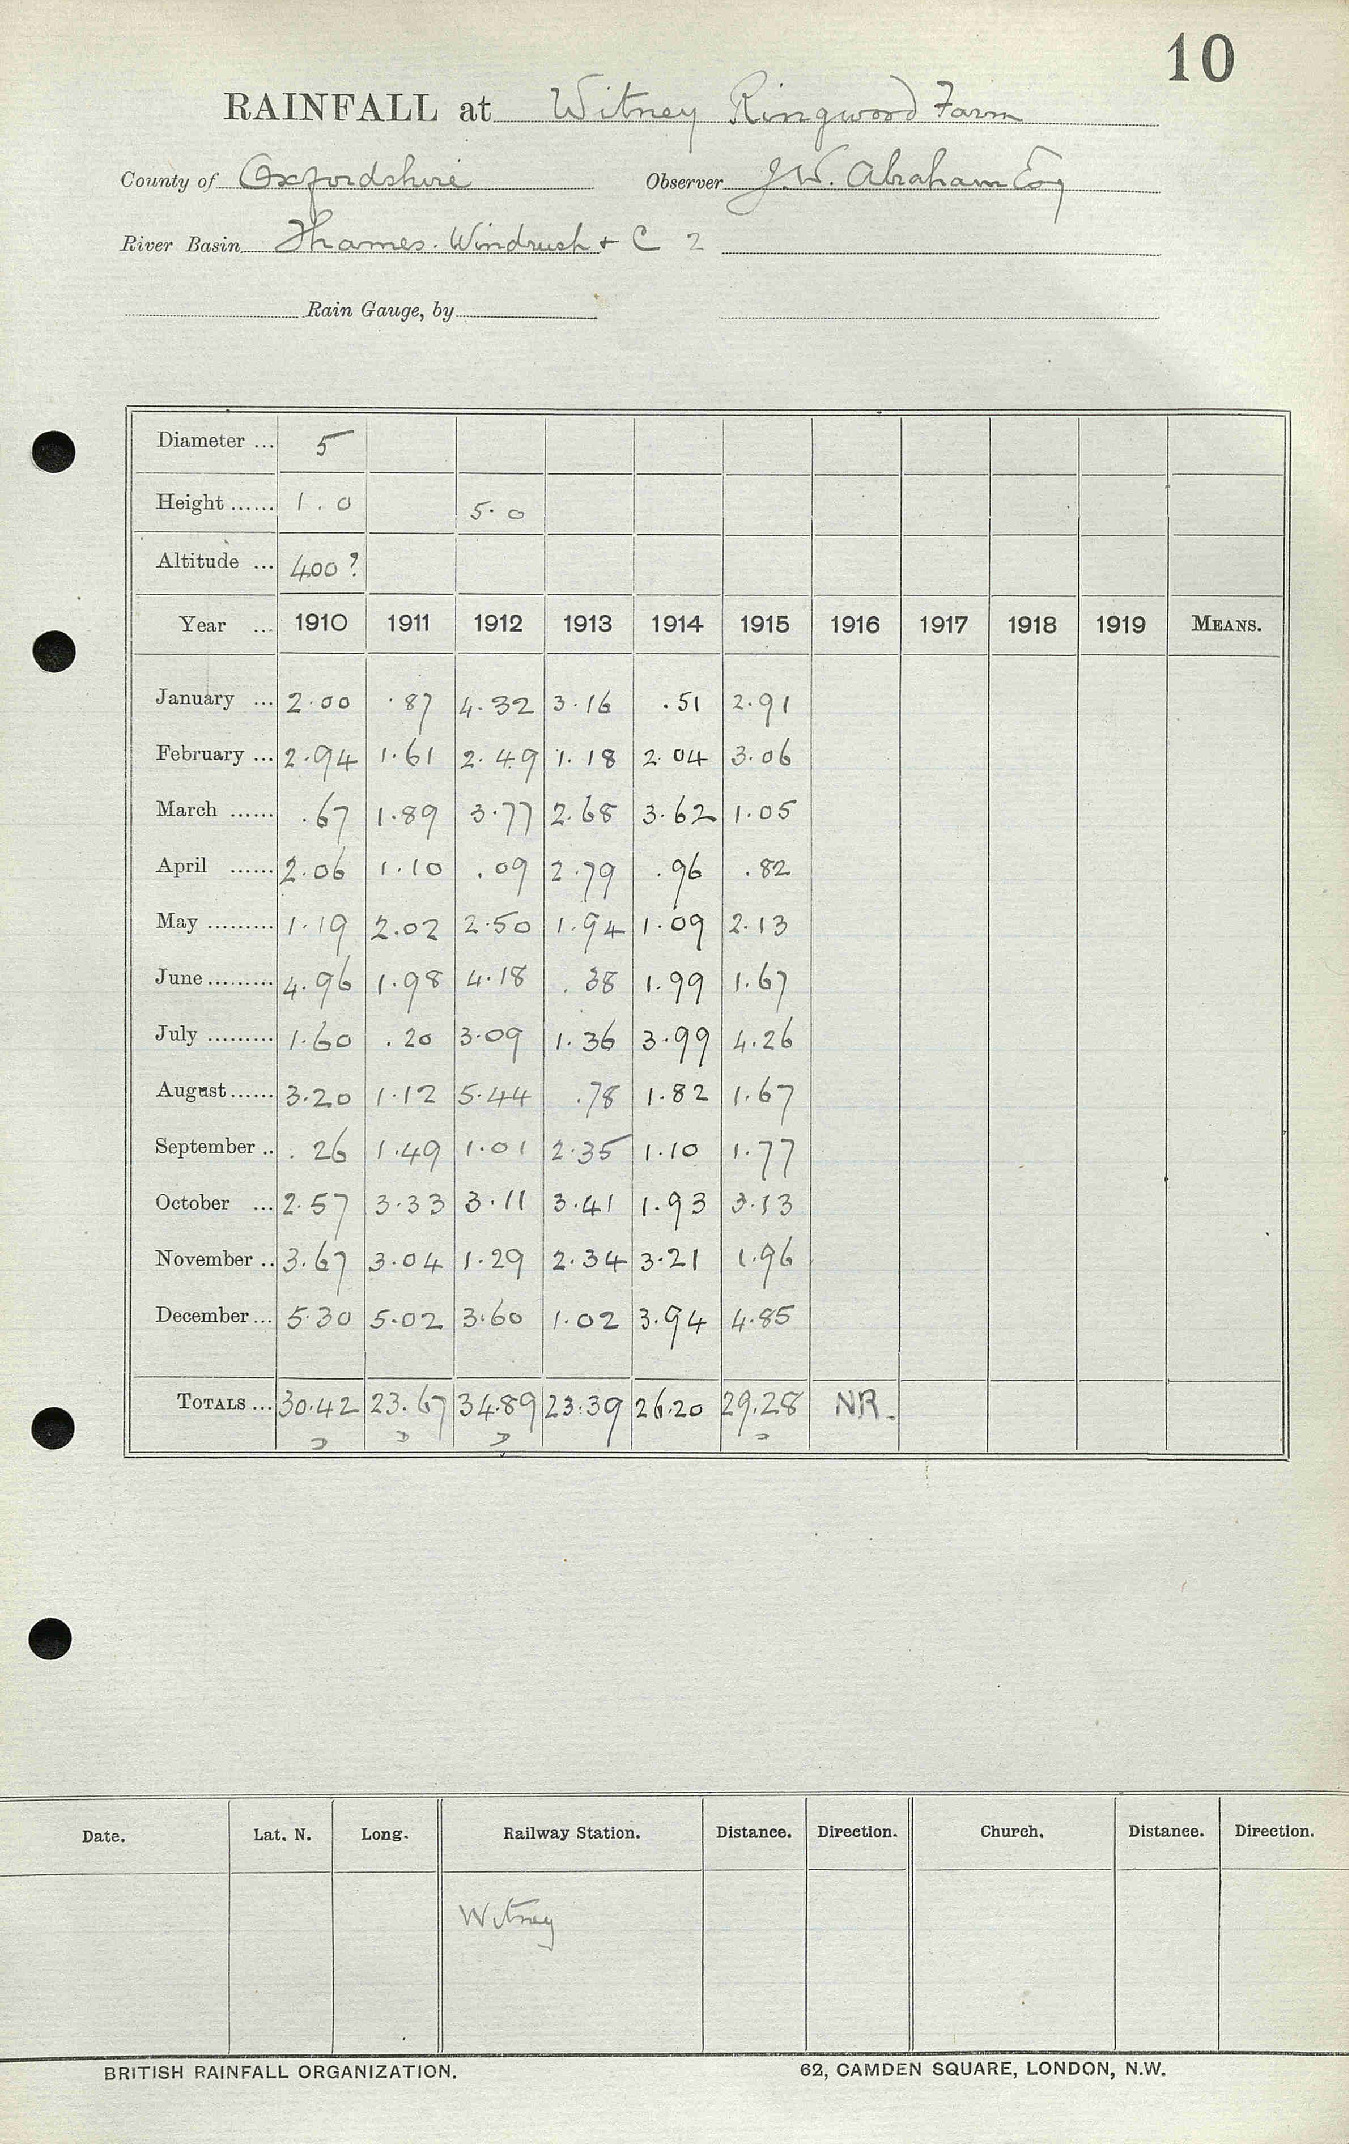 10
RAINFALL at Witney Ringwood Farm
County of Oxfordshire Observer J.W. Abraham Esq
River Basin Thames. Windrush + C 2
Rain Gauge, by
Diameter ... 5
Height ...... 1.0 5.0
Altitude ... 400?
Year ... 1910 1911 1912 1913 1914 1915 1916 1917 1918 1919 MEANS.
January ... 2.00 .87 4.32 3.16 .51 2.91
February ... 2.94 1.61 2.49 1.18 2.04 3.06
March ...... .67 1.89 3.77 2.68 3.62 1.05
April ...... 2.06 1.10 .09 2.79 .96 .82
May ......... 1.19 2.02 2.50 1.94 1.09 2.13
June ......... 4.96 1.98 4.18 .38 1.99 1.67
July ......... 1.60 .20 3.09 1.36 3.99 4.26
August ...... 3.20 1.12 5.44 .78 1.82 1.67
September .. .26 1.49 1.01 2.35 1.10 1.77
October ... 2.57 3.33 3.11 3.41 1.93 3.13
November .. 3.67 3.04 1.29 2.34 3.21 1.96
December ... 5.30 5.02 3.60 1.02 3.94 4.85
TOTALS ... 30.42 23.67 34.89 23.39 26.20 29.28 NR.
Date. Lat. N. Long. Railway Station. Distance. Direction. Church. Distance. Direction.
Witney
BRITISH RAINFALL ORGANIZATION. 62, CAMDEN SQUARE, LONDON, N.W.